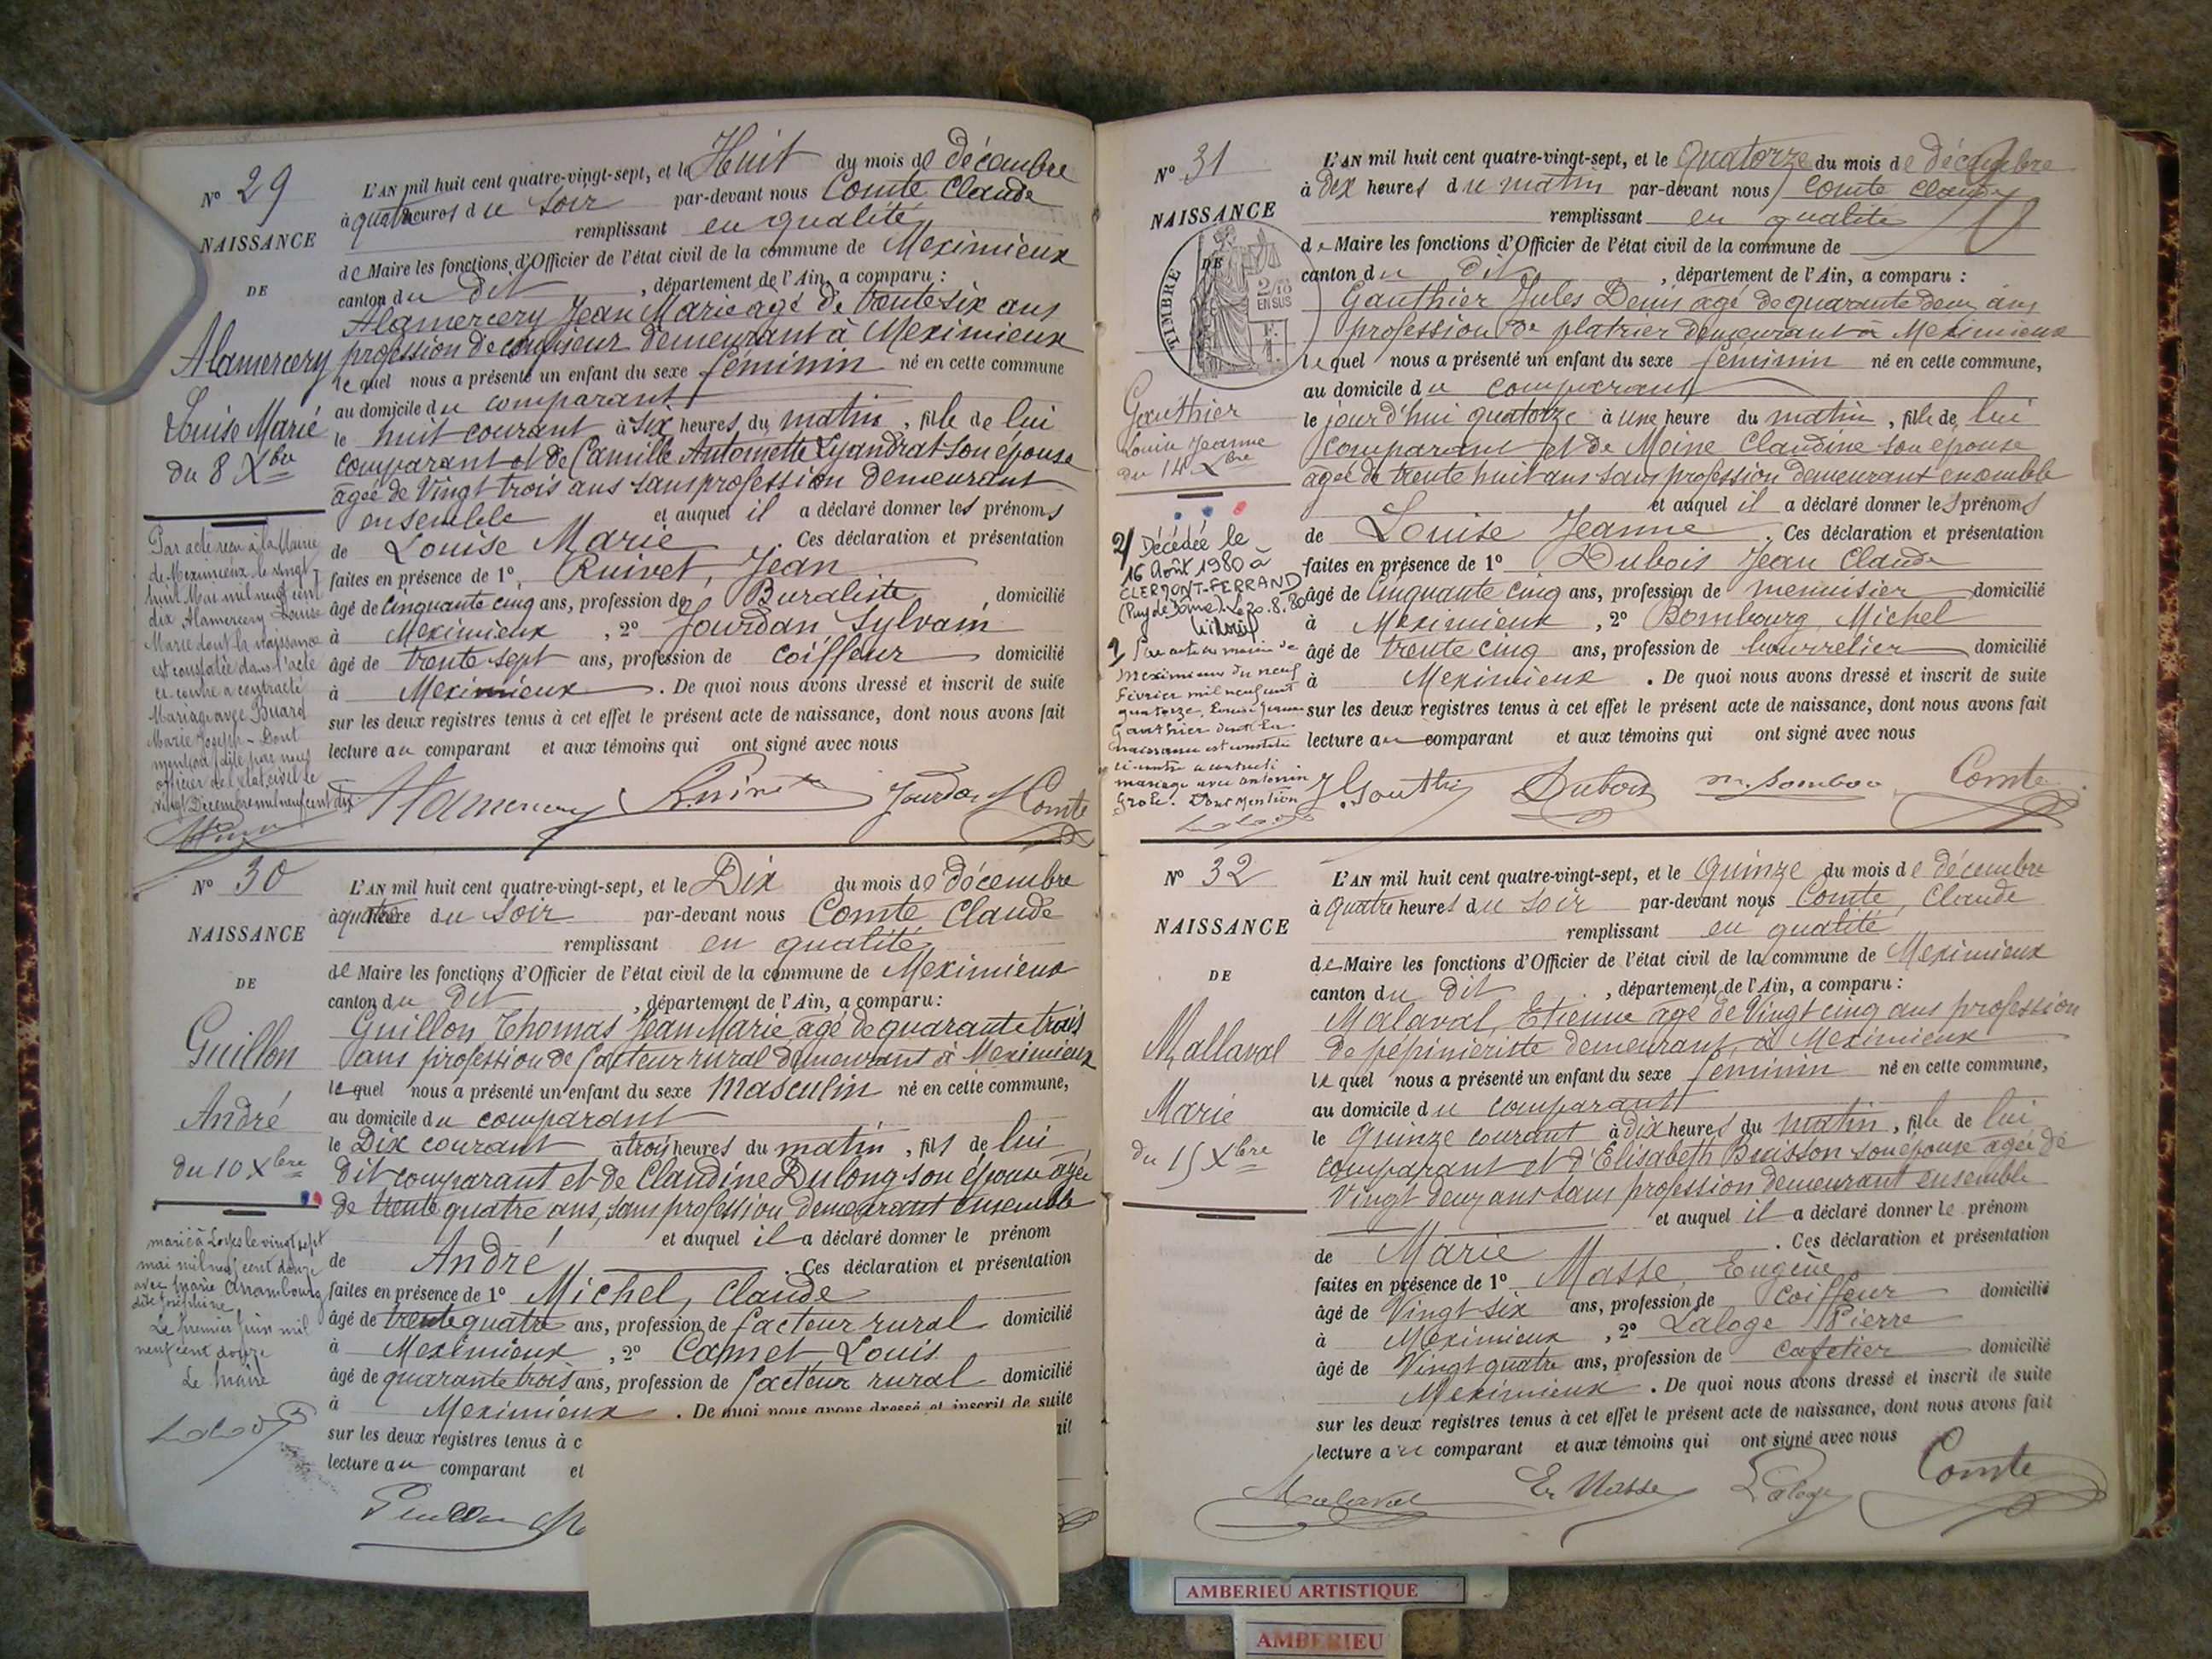 N° 29
NAISSANCE
DE
Alamercery
Louise Marie
du 8 Xbre
Par acte reçu à la Mairie
de Meximieux le vingt
huit Mai mil neuf cent
dix Alamercery Louise
Marie dont la naissance
est constatée dans l'acte
ci-contre a contracté
Mariage avec Buard
Marie Joseph - Dont
mention faite par nous
officier de l'état civil le
vingt Décembre mil neuf cent dix
L'AN mil huit cent quatre-vingt-sept, et le Huit du mois de décembre
à quatre heures du soir par-devant nous Comte Claude
remplissant en qualité
de Maire les fonctions d'Officier de l'état civil de la commune de Meximieux
canton du dit, département de l'Ain, a comparu :
Alamercery Jean Marie agé de trente six ans
profession de demeurant à Meximieux
lequel nous a présenté un enfant du sexe féminin né en cette commune
au domicile du comparant
le huit courant à six heures du matin, fille de lui
comparant et de Camille Antoinette Lyandrat son épouse
agée de Vingt trois ans sans profession demeurant
ensemble et auquel il a déclaré donner les prénoms
de Louise Marie. Ces déclaration et présentation
faites en présence de 1° Ruivet, Jean
âgé de Cinquante cinq ans, profession de Buraliste domicilié
à Meximieux, 2° Jourdan Sylvain
âgé de trente sept ans, profession de coiffeur domicilié
à Meximieux. De quoi nous avons dressé et inscrit de suite
sur les deux registres tenus à cet effet le présent acte de naissance, dont nous avons fait
lecture au comparant et aux témoins qui ont signé avec nous
Alamercery Ruivet Jourdan Comte
N° 30
NAISSANCE
DE
Guillon
André
du 10 Xbre
marié à Loyes le vingt sept
mai mil neuf cent douze
avec Marie Arrambourg
dite Joséphine
Le premier juin mil
neuf cent douze
Le Maire
L'AN mil huit cent quatre-vingt-sept, et le Dix du mois de décembre
à quatre heure du soir par-devant nous Comte Claude
remplissant en qualité
de Maire les fonctions d'Officier de l'état civil de la commune de Meximieux
canton du dit, département de l'Ain, a comparu :
Guillon Thomas Jean Marie agé de quarante trois
ans profession de facteur rural demeurant à Meximieux
lequel nous a présenté un enfant du sexe masculin né en cette commune,
au domicile du comparant
le Dix courant à trois heures du matin, fils de lui
dit comparant et de Claudine Dulong son épouse agée
de trente quatre ans, sans profession demeurant ensemble
et auquel il a déclaré donner le prénom
de André. Ces déclaration et présentation
faites en présence de 1° Michel, Claude
âgé de trente quatre ans, profession de facteur rural domicilié
à Meximieux, 2° Camet Louis
âgé de quarante trois ans, profession de facteur rural domicilié
à Meximieux. De quoi nous avons dressé et inscrit de suite
sur les deux registres tenus à c
lecture au comparant et
Guillon
N° 31
NAISSANCE
DE
TIMBRE
2/10
EN SUS
Gauthier
Louise Jeanne
du 14 Xbre
2/ Décédée le
16 Août 1980 à
CLERMONT-FERRAND
(Puy de Dôme). Le 20.8.80
1/ Par acte en mairie de
Meximieux du neuf
Février mil neuf cent
quatorze, Louise Jeanne
Gauthier dont la
naissance est constatée
ci-contre a contracté
mariage avec Antonin
. Dont Mention
L'AN mil huit cent quatre-vingt-sept, et le Quatorze du mois de décembre
à dix heures du matin par-devant nous Comte Claude
remplissant en qualité
de Maire les fonctions d'Officier de l'état civil de la commune de
canton du dit, département de l'Ain, a comparu :
Gauthier Jules Denis agé de quarante deux ans
profession de platrier demeurant à Meximieux
lequel nous a présenté un enfant du sexe féminin né en cette commune,
au domicile du comparant
le jourd'hui quatorze à une heure du matin, fille de lui
comparant et de Moine Claudine son épouse
agée de trente huit ans sans profession demeurant ensemble
et auquel il a déclaré donner les prénoms
de Louise Jeanne. Ces déclaration et présentation
faites en présence de 1° Dubois Jean Claude
âgé de Cinquante cinq ans, profession de menuisier domicilié
à Meximieux, 2° Bombourg, Michel
âgé de trente cinq ans, profession de bourrelier domicilié
à Meximieux. De quoi nous avons dressé et inscrit de suite
sur les deux registres tenus à cet effet le présent acte de naissance, dont nous avons fait
lecture au comparant et aux témoins qui ont signé avec nous
J. Gauthier Dubois Comte
N° 32
NAISSANCE
DE
Mallaval
Marie
du 15 Xbre
L'AN mil huit cent quatre-vingt-sept, et le Quinze du mois de décembre
à Quatre heures du soir par-devant nous Comte, Claude
remplissant en qualité
de Maire les fonctions d'Officier de l'état civil de la commune de Meximieux
canton du dit, département de l'Ain, a comparu :
Malaval, Etienne agé de Vingt cinq ans profession
de pépinieriste demeurant à Meximieux
lequel nous a présenté un enfant du sexe féminin né en cette commune,
au domicile du comparant
le Quinze courant à dix heures du matin, fille de lui
comparant et d'Elisabeth Buisson son épouse agée de
Vingt deux ans sans profession demeurant ensemble
et auquel il a déclaré donner le prénom
de Marie. Ces déclaration et présentation
faites en présence de 1° Masse, Eugène
âgé de Vingt six ans, profession de Coiffeur domicilié
à Meximieux, 2° Laloge Pierre
âgé de Vingt quatre ans, profession de cafetier domicilié
Meximieux. De quoi nous avons dressé et inscrit de suite
sur les deux registres tenus à cet effet le présent acte de naissance, dont nous avons fait
lecture au comparant et aux témoins qui ont signé avec nous
Malaval E. Masse Laloge Comte
AMBERIEU ARTISTIQUE
AMBERIEU